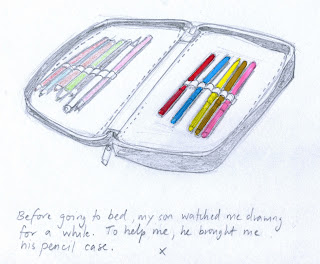 Before going to bed, my son watched me drawing
for a while. To help me, he brought me
his pencil case. x